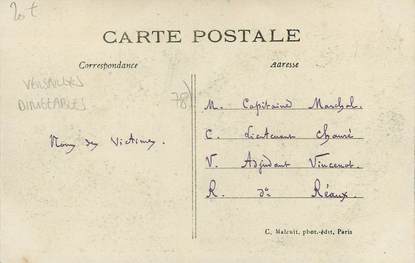 20 €
CARTE POSTALE
Correspondance
Adresse
VERSAILLES
DIRIGEABLES
78
Noms des Victimes.
M. Capitaine Marchal.
C. Lieutenant Chauré
V. Adjudant Vincenot.
R. d° Réaux.
C. Malcuit, phot.-édit, Paris